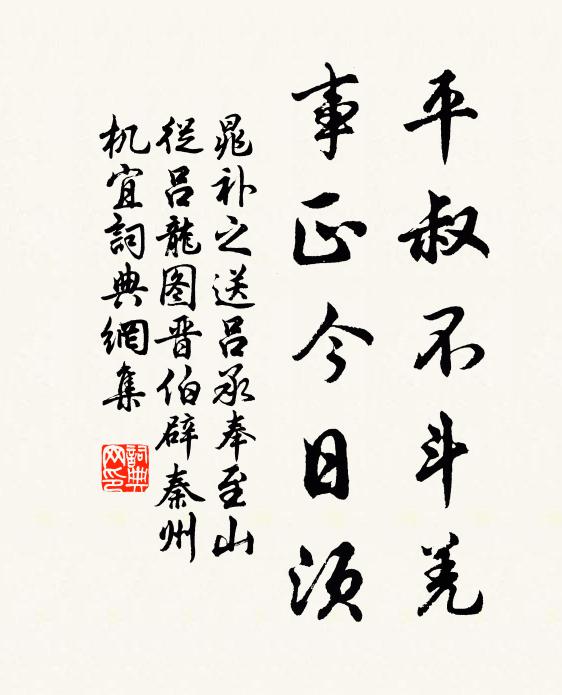 平叔不斗羌
事正今日须
晁补之送吕承奉至山
從吕龍图晋伯辟秦州
机宜詞典網集
詞典
网印